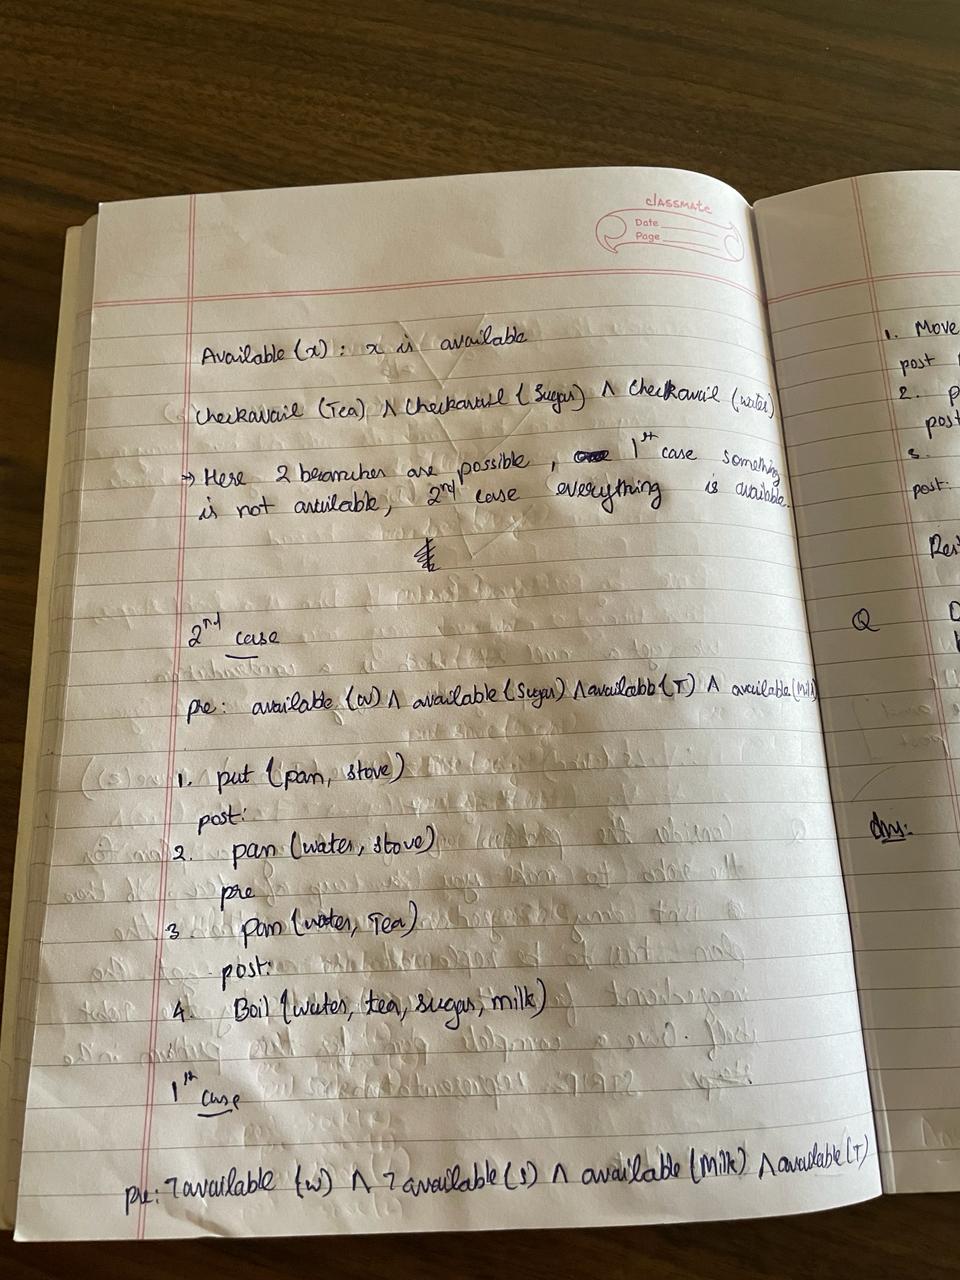 classmate
Date
Page
Available (x) : x is available
Checkavail (Tea) ∧ Checkavail (Sugar) ∧ Checkavail (water)
→ Here 2 branches are possible, 1th case something
is not available, 2nd case everything is available.
2nd case
pre: available (w) ∧ available (Sugar) ∧ available (T) ∧ available (Milk)
1. put (pan, stove)
post:
2. pan (water, stove)
pre
3 pan (water, Tea)
post:
4. Boil (water, tea, sugar, milk)
1th case
pre: ¬available (w) ∧ ¬available (s) ∧ available (Milk) ∧ available (T)
1. Move
post
2. p
post
3.
post:
Res
Q
Ans: